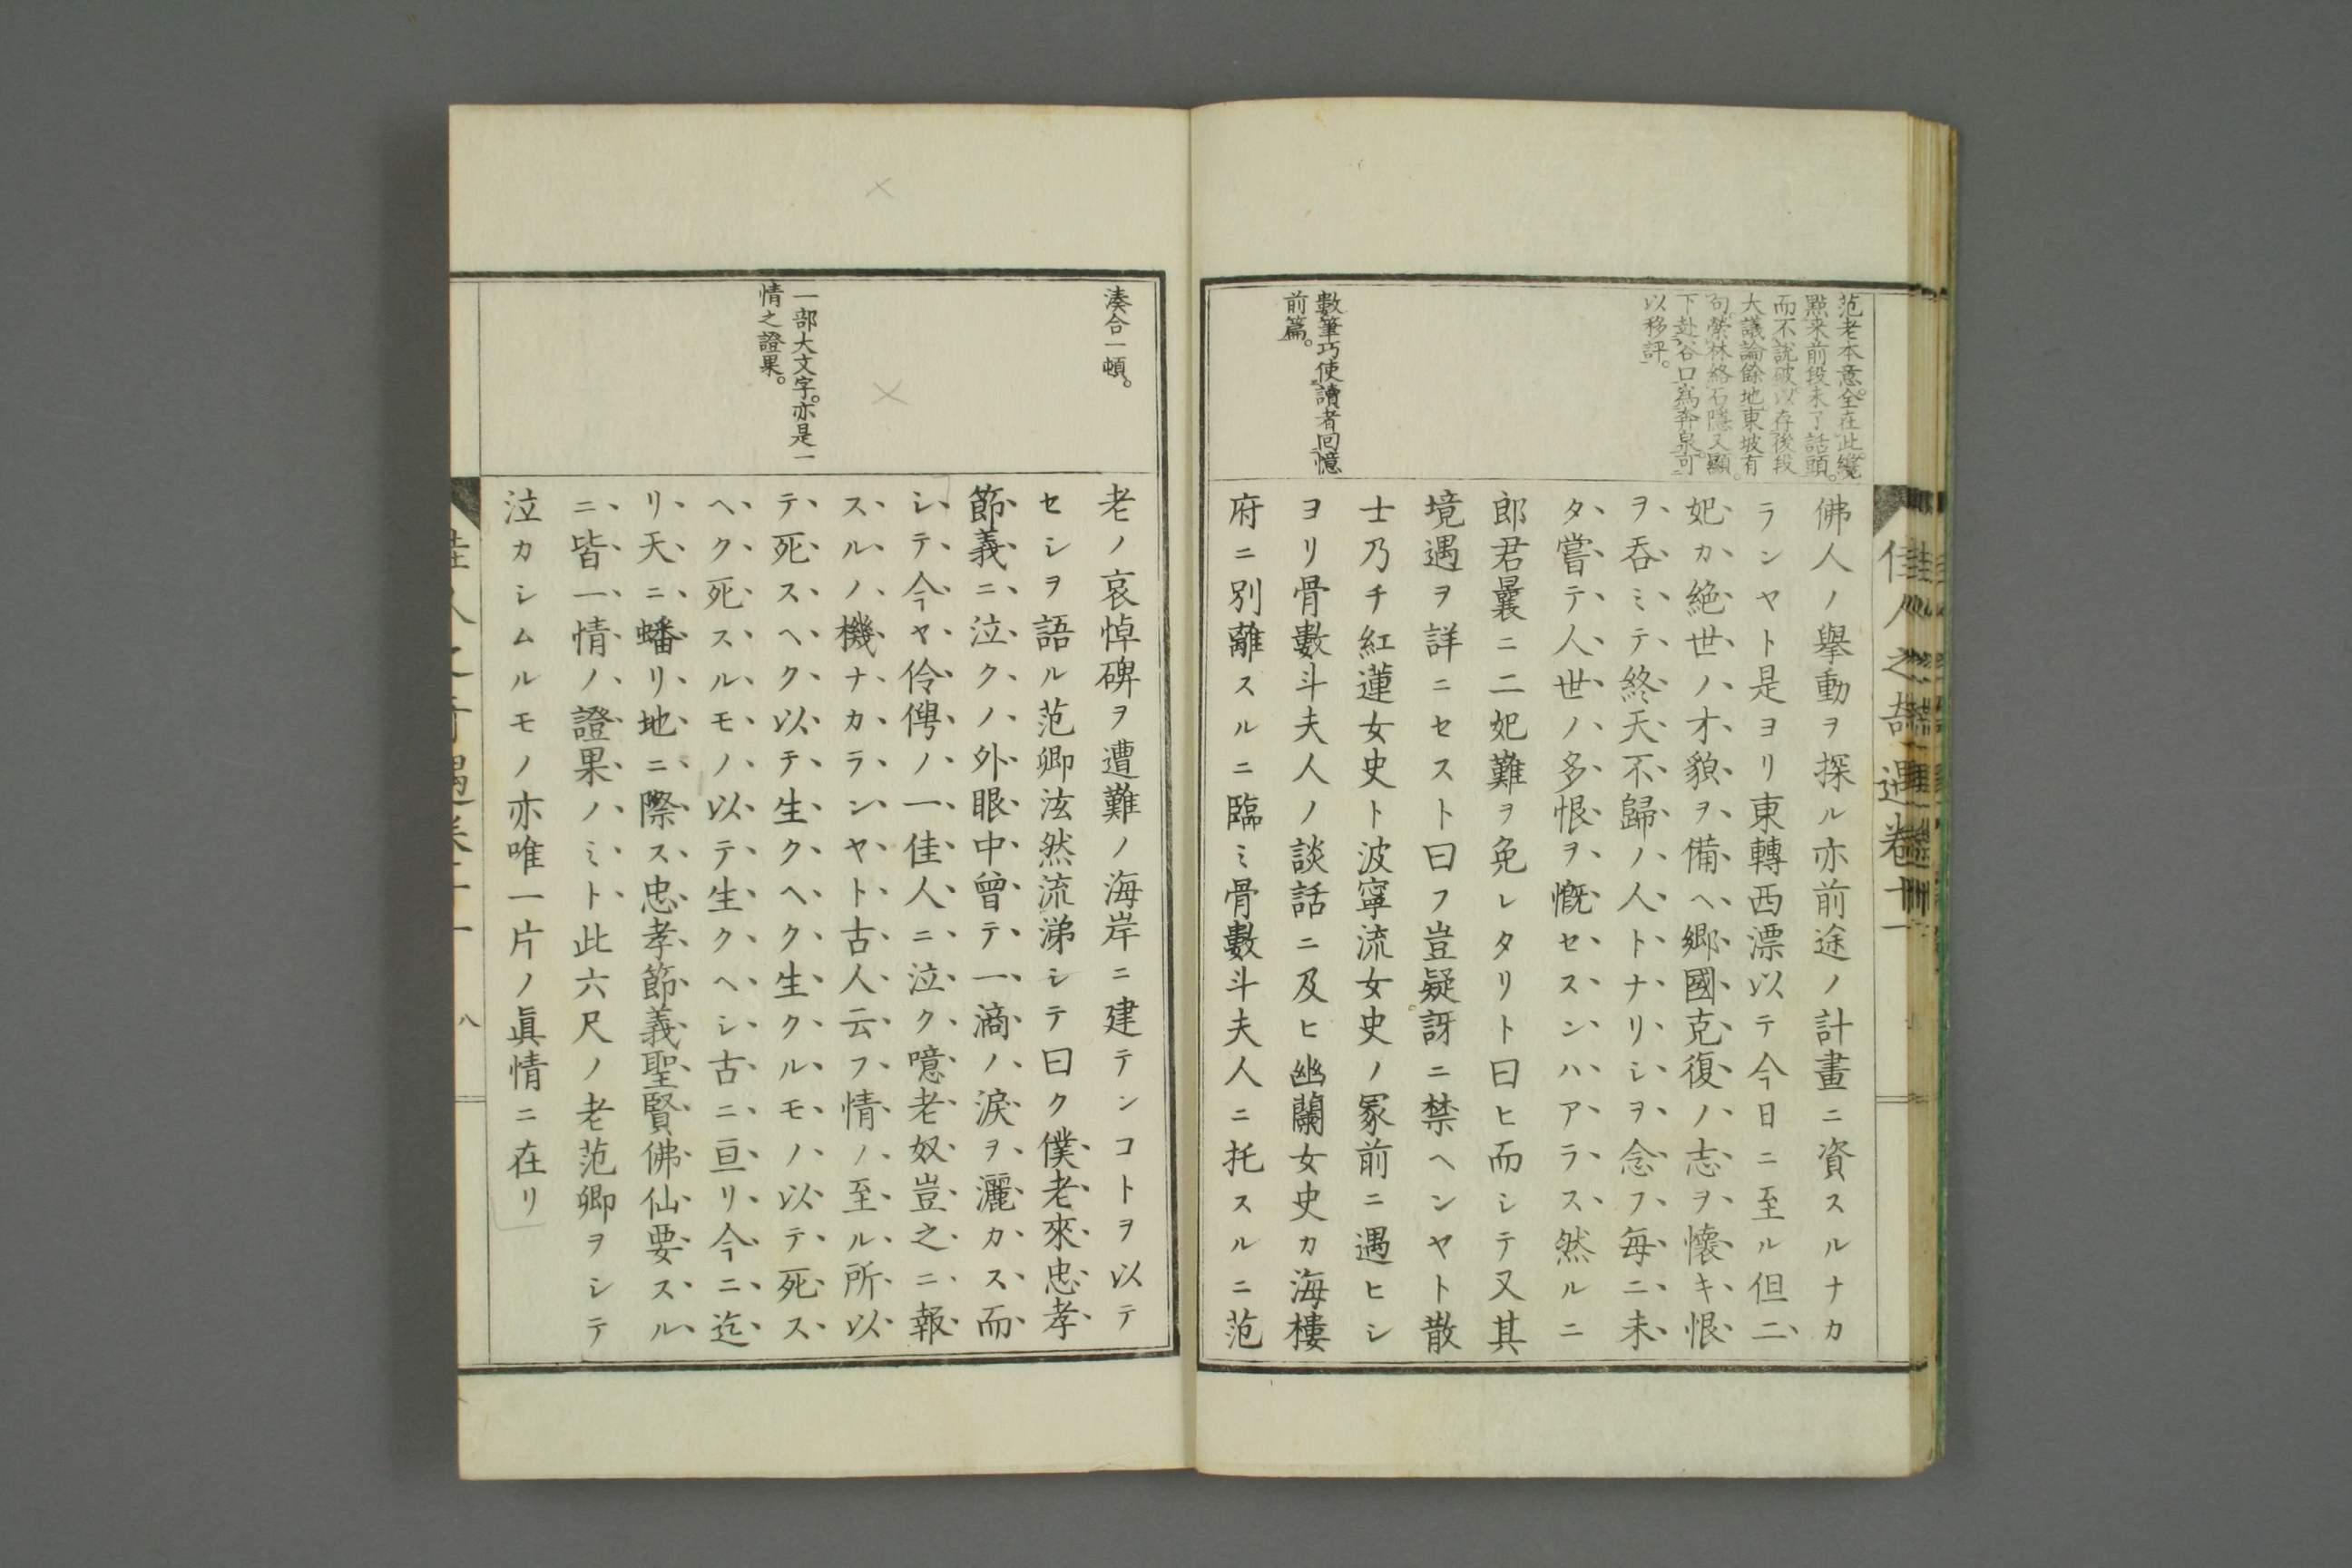 佳人之奇遇卷十一
范老本意全在此纔
點来前段未了話頭。
而不說破以存後段
大議論餘地東坡有
句縈林絡石隱又顯。
下赴谷口爲奔泉可
以移評。
數筆巧使讀者回憶
前篇。
佛人ノ擧動ヲ探ル亦前途ノ計畫ニ資スルナカ
ランヤト是ヨリ東轉西漂以テ今日ニ至ル但二
妃カ絶世ノ才貌ヲ備ヘ鄉國克復ノ志ヲ懷キ恨
ヲ呑ミテ終天不歸ノ人トナリシヲ念フ毎ニ未
タ嘗テ人世ノ多恨ヲ慨セスンハアラス然ルニ
郎君曩ニ二妃難ヲ免レタリト曰ヒ而シテ又其
境遇ヲ詳ニセスト曰フ豈疑訝ニ禁ヘンヤト散
士乃チ紅蓮女史ト波寧流女史ノ冢前ニ遇ヒシ
ヨリ骨數斗夫人ノ談話ニ及ヒ幽蘭女史カ海樓
府ニ別離スルニ臨ミ骨數斗夫人ニ托スルニ范
湊合一頓。
一部大文字。亦是一
情之證果。
老ノ哀悼碑ヲ遭難ノ海岸ニ建テンコトヲ以テ
セシヲ語ル范卿泫然流涕シテ曰ク僕老來忠孝
節義ニ泣クノ外眼中曾テ一滴ノ淚ヲ灑カス而
シテ今ヤ伶俜ノ一佳人ニ泣ク噫老奴豈之ニ報
スルノ機ナカランヤト古人云フ情ノ至ル所以
テ死スヘク以テ生クヘク生クルモノ以テ死ス
ヘク死スルモノ以テ生クヘシ古ニ亘リ今ニ迄
リ天ニ蟠リ地ニ際ス忠孝節義聖賢佛仙要スル
ニ皆一情ノ證果ノミト此六尺ノ老范卿ヲシテ
泣カシムルモノ亦唯一片ノ眞情ニ在リ
八